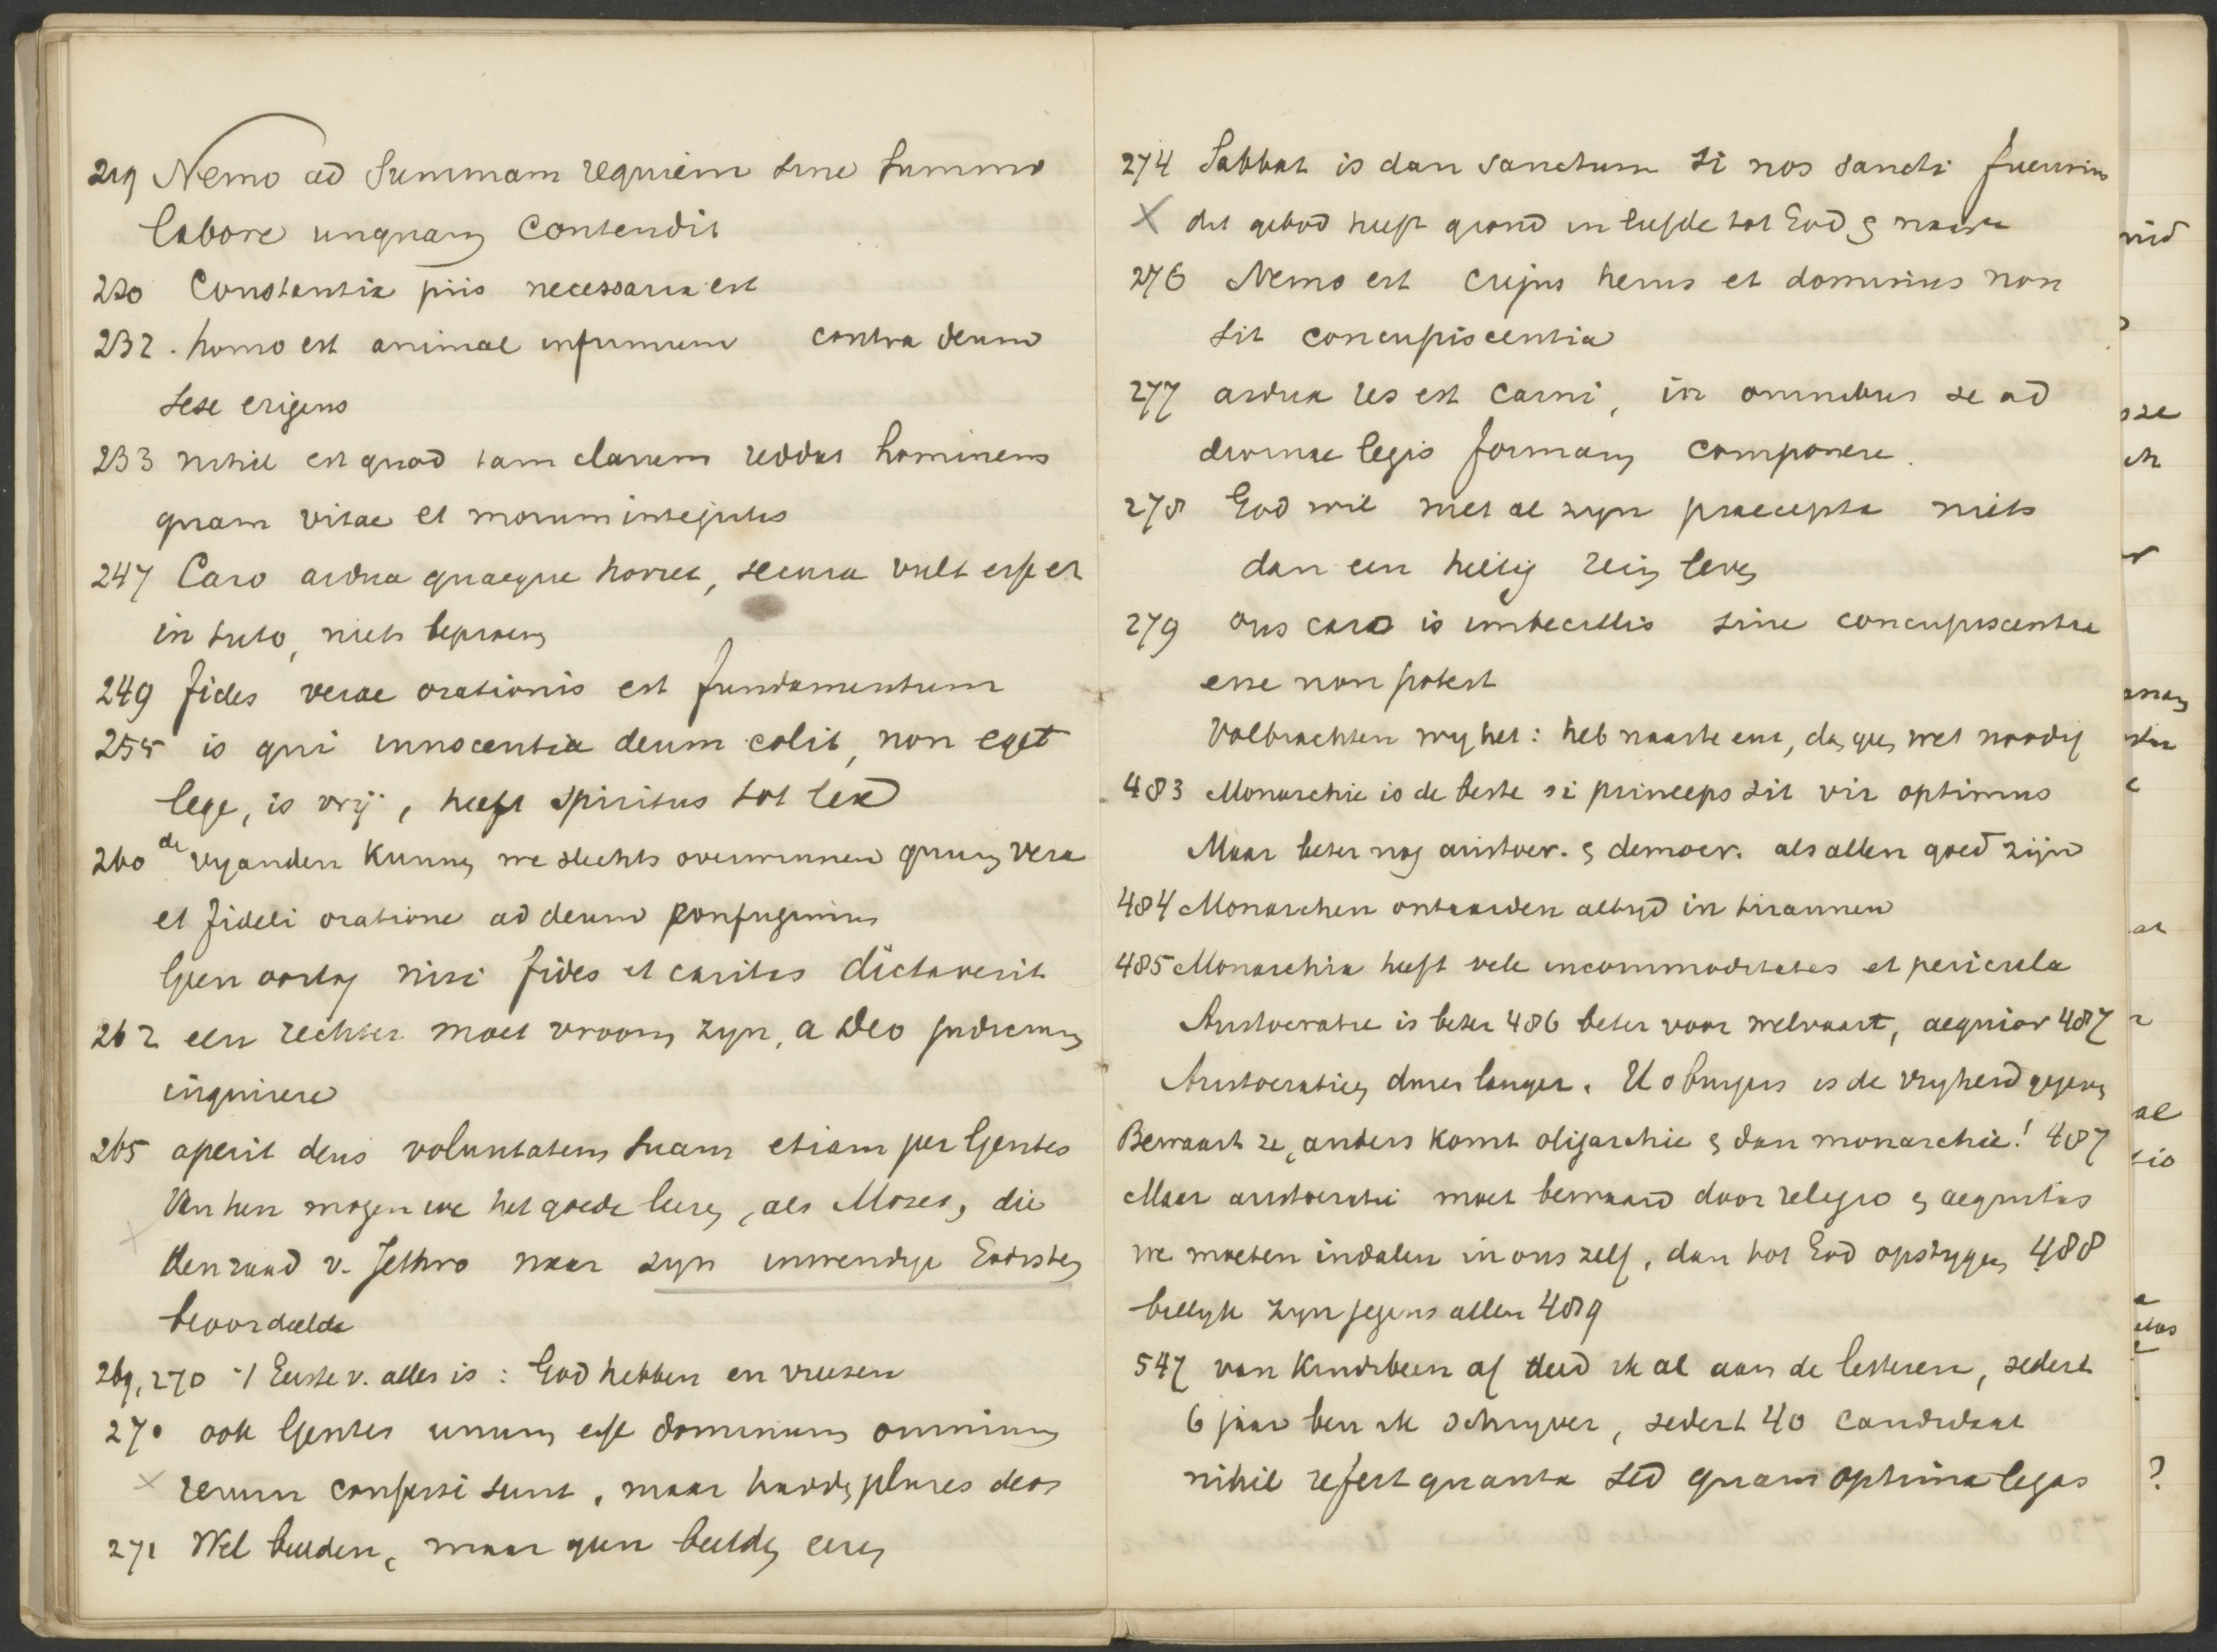 219 Nemo ad summam requiem sine summo
labore unquam contendit
220 Constantia piis necessaria est
232. homo est animal infirmum contra deum
sese erigens
233 nihil est quod tam clarum reddat hominem
quam vitae et morum integritas
247 Caro ardua quaeque horret, secura vult esse et
in tuto, niets beproeven
249 fides verae orationis est fundamentum
255 is qui innocentia deum colit, non eget
lege, is vrij, heeft spiritus tot lex
260 de vyanden kunnen we slechts overwinnen quum vera
et fideli oratione ad deum confugimus
Geen oorlog nisi fides et caritas dictaverit
262 een rechter moet vroom zyn, a Deo judicium
inquirere
265 aperit deus voluntatem suam etiam per Gentes
Van hen mogen we het goede leeren, als Mozes, die
den raad v. Jethro naar zyn inwendige Godsstem
beoordeelde
269, 270 't Eerste v. alles is: God hebben en vreezen
270 ook Gentes unum esse dominum omnium
x rerum confessi sunt, maar hadden plures deos
271 Wel beelden, maar geen beelden eeren
274 Sabbat is dan sanctum si nos sancti fuerimus
X dit gebod heeft grond in liefde tot God & naaste
276 Nemo est cujus herus et dominus non
sit concupiscentia
277 ardua res est carni, in omnibus se ad
divinae legis formam componere.
278 God wil met al zyn praecepta niets
dan een heilig rein leven
279 ons caro is imbecillis sine concupiscentia
esse non potest
Volbrachten wy het: heb naaste enz, dan geen wet noodig
483 Monarchie is de beste si princeps sit vir optimus
Maar beter nog aristocr. & democr. als allen goed zijn
484 Monarchen ontaarden altyd in tirannen
485 Monarchia heeft vele incommoditates et pericula
Aristocratie is beter 486 beter voor welvaart, aequior 487
Aristocratien duren langer. U o burgers is de vryheid gegeven
Bewaart ze, anders komt oligarchie & dan monarchie! 487
Maar aristocratie moet bewaard door religio & aequitas
we moeten indalen in ons zelf, dan tot God opstygen 488
billyk zyn jegens allen 489
547 van kindsbeen af deed ik al aan de letteren, sedert
6 jaar ben ik schryver, sedert 40 candidaat
nihil refert quanta sed quam optima legas